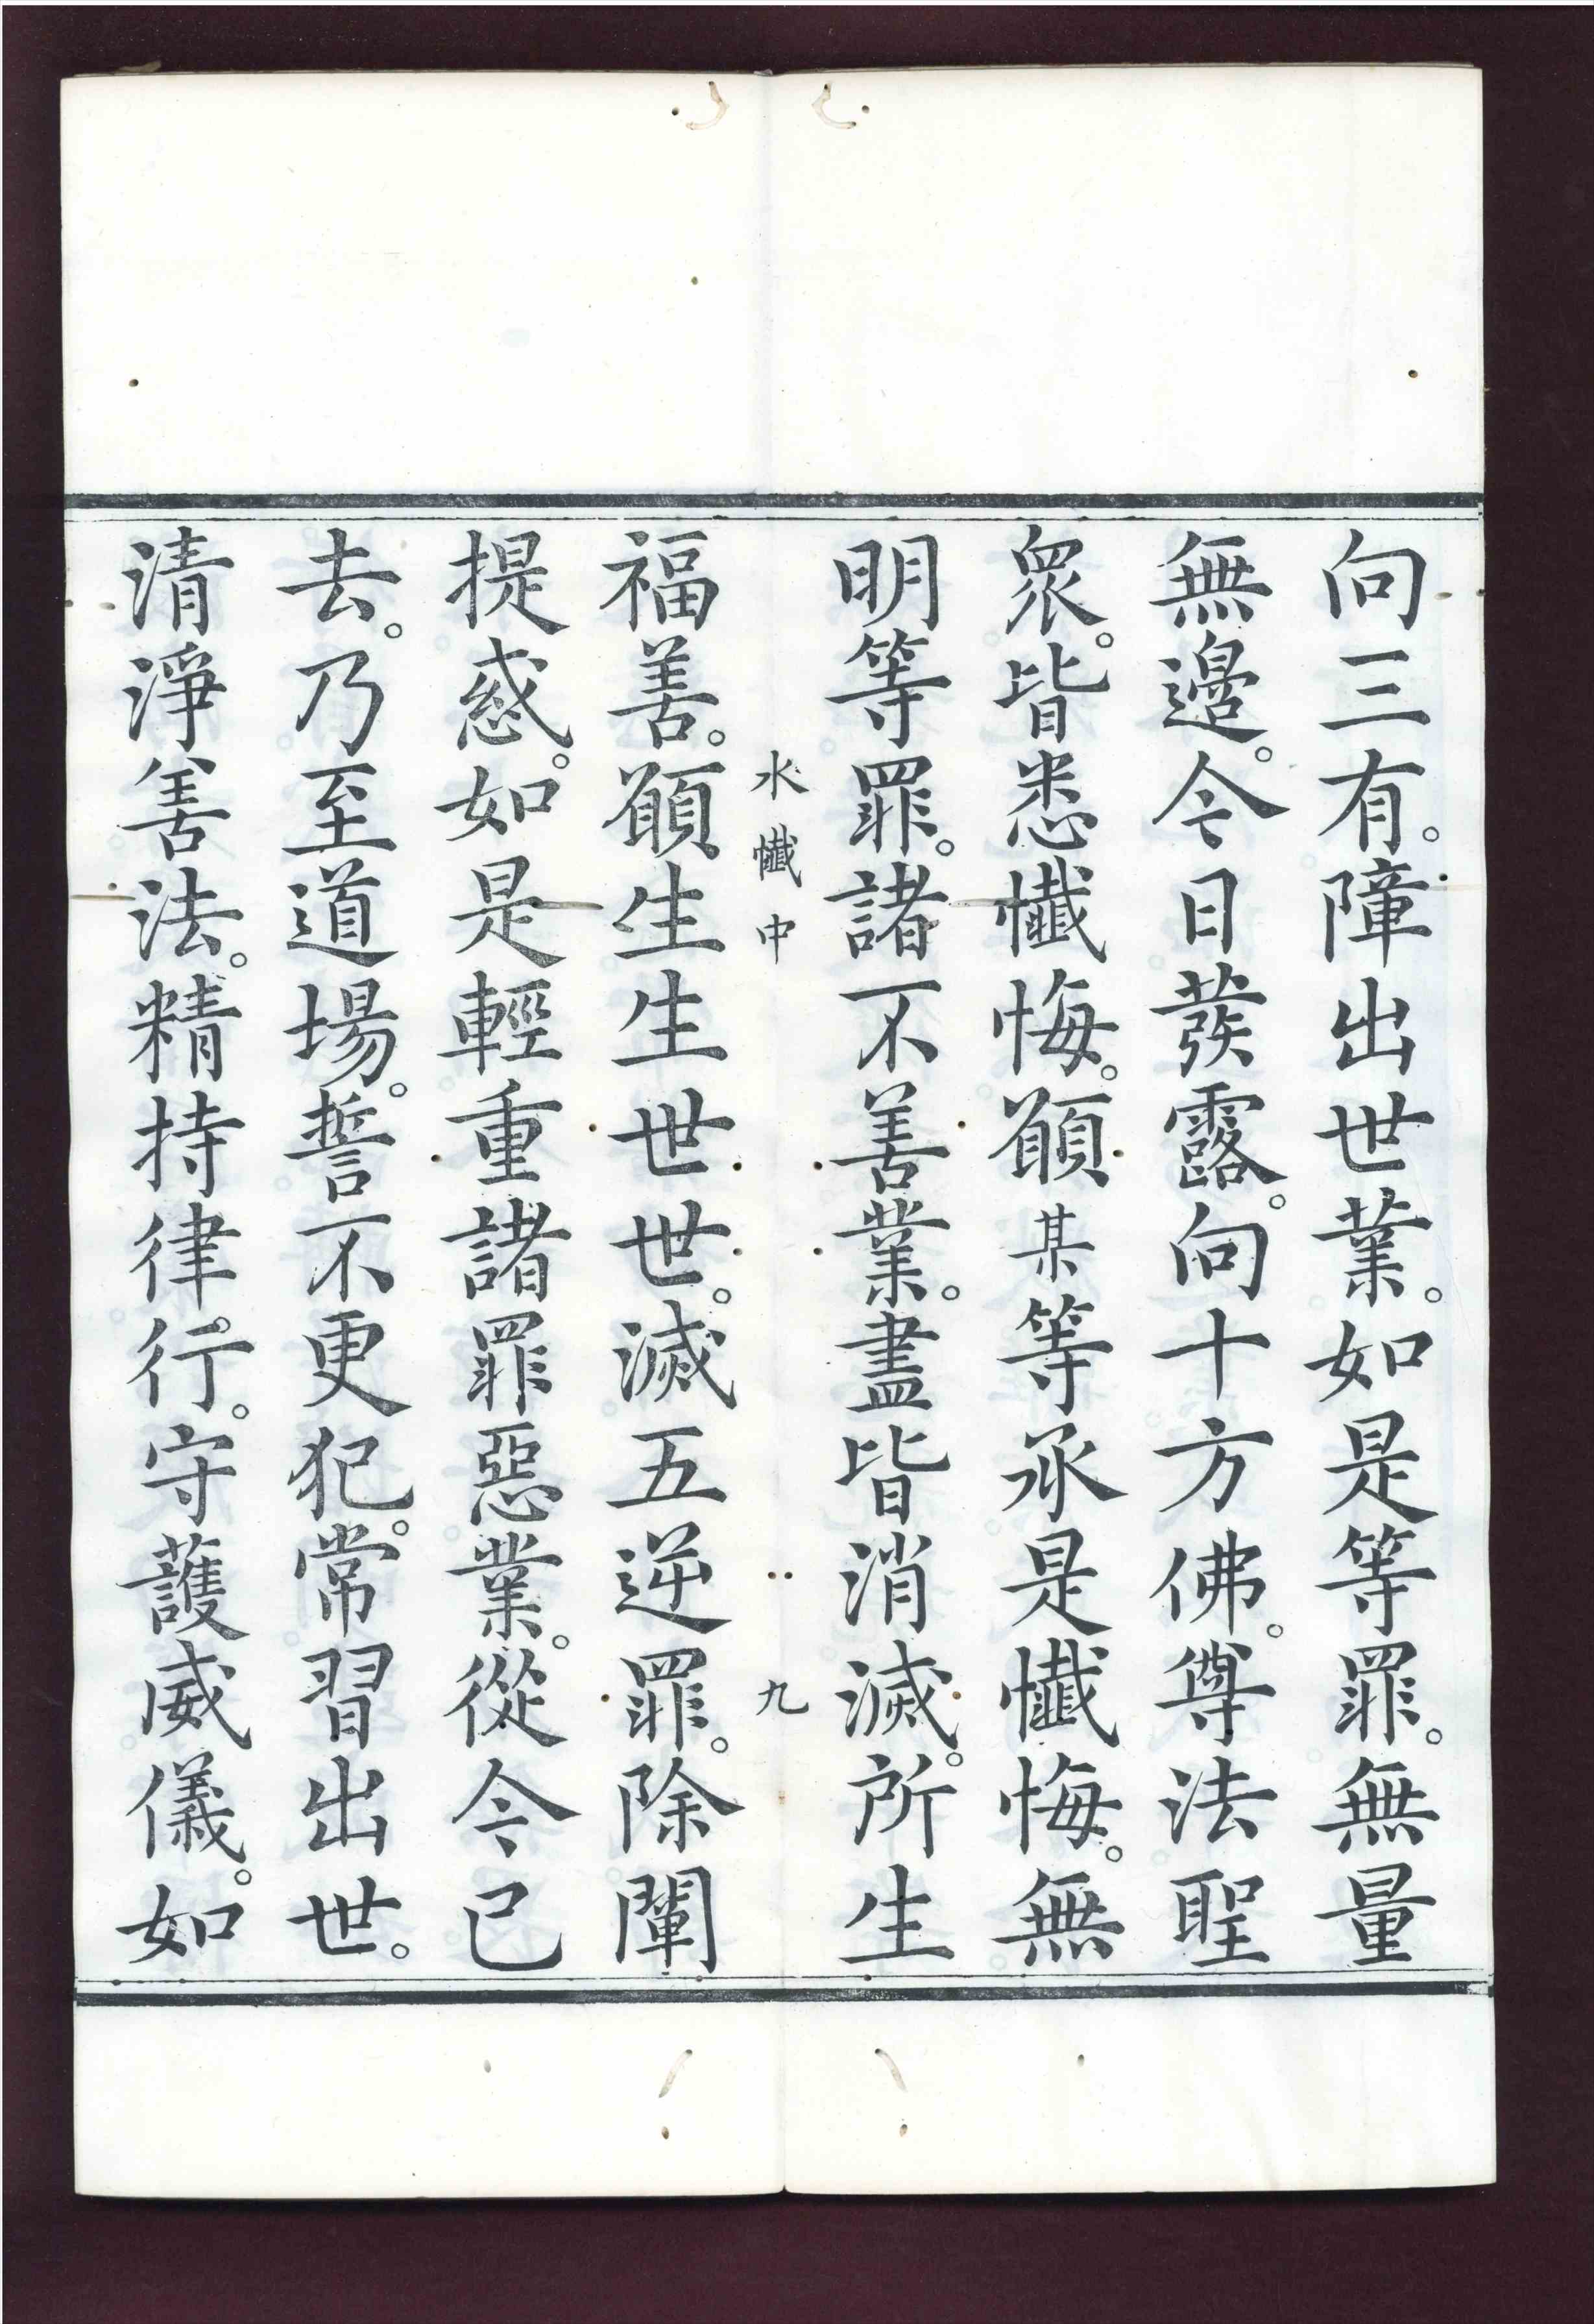 向三有。障出世業。如是等罪。無量
無邉。今日發露。向十方佛。尊法聖
眾。皆悉懺悔。願某等承是懺悔。無
明等罪。諸不善業。盡皆消滅。所生
水懺中 九
福善。願生生世世。滅五逆罪。除闡
提惑。如是輕重諸罪惡業。從今已
去。乃至道場。誓不更犯。常習出世。
清淨善法。精持律行。守護威儀。如